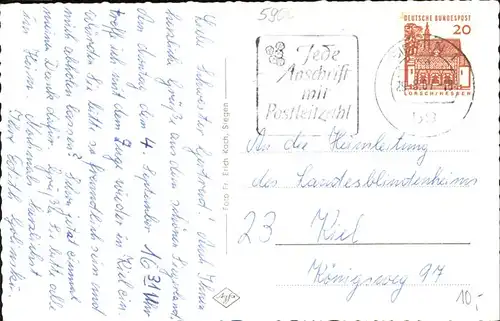 590
DEUTSCHE BUNDESPOST
20
LORSCH/HESSEN
Jede
Anschrift
mit
Postleitzahl
Liebe Schwester Gertrud! Auch Ihnen
herzliche Grüße aus dem schönen Siegerland.
Am Montag dem 4. September 16 31 Uhr
treffe ich mit dem Zuge wieder in Kiel ein.
Würden Sie bitte so freundlich sein und
mich abholen lassen? Schon jetzt einmal
meinen Dank dafür. Grüßen Sie bitte alle
im Heim. Nochmals herzlichst
Ihre Edith
Foto Fr. Erich Koch, Siegen
An die Heimleitung
des Landesblindenheims
23 Kiel
Königsweg 97
10,-